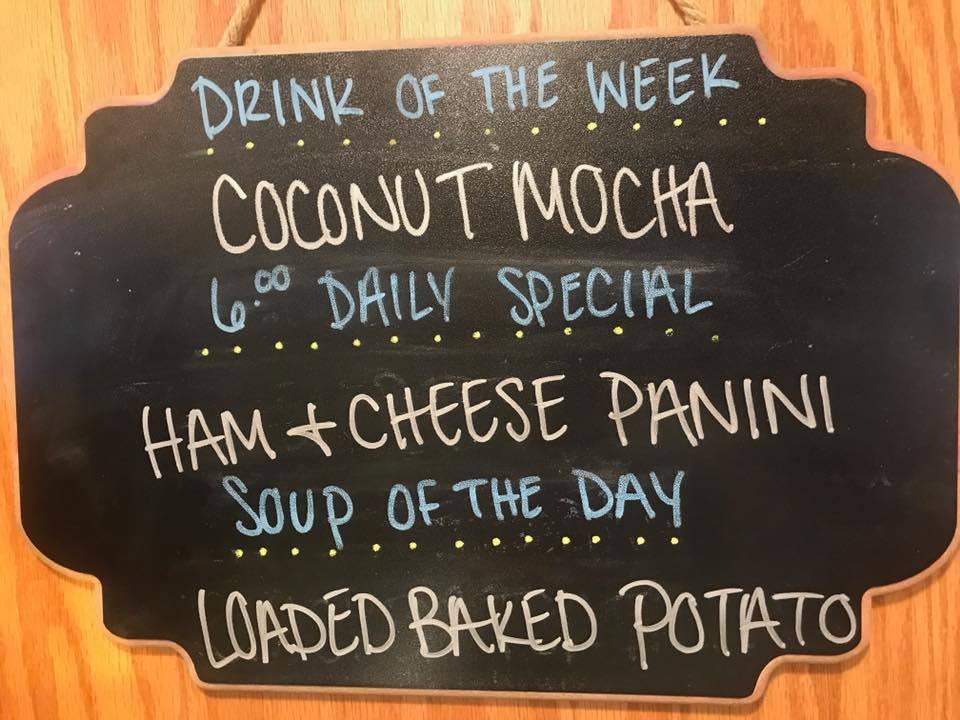 DRINK OF THE WEEK
COCONUT MOCHA
6.00 DAILY SPECIAL
HAM + CHEESE PANINI
SOUP OF THE DAY
LOADED BAKED POTATO